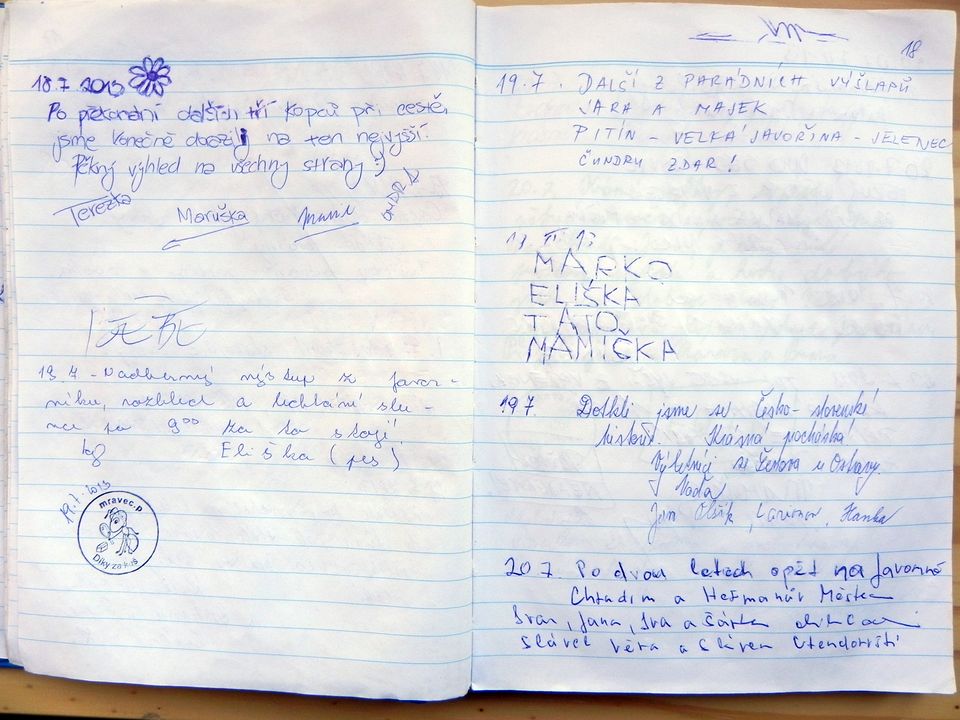 18.7 2013
Po překonání dalších tří kopců při cestě,
jsme konečně dorazili na ten nejvyšší.
Pěkný výhled na všechny strany :)
Terezka
Maruška
19.7 - Nádherný výstup z Javor-
níku, rozhled a lechtání slu-
nce to 9⁰⁰ za to stojí!
Eliška (pes)
19.7.2013
mravec.p
Díky za kus
18
19.7. DALŠÍ Z PARÁDNÍCH VÝŠLAPŮ
JARA A MAJEK
PITÍN - VELKÁ JAVOŘINA - JELENEC
ČUNDRU ZDAR!
MARKO
ELIŠKA
TATO
MAMIČKA
19.7. Dotkli jsme se Česko-slovenské
Krásná
Výletníci ze Ženklova u Ostravy.
Naďa
Jan Olšík, Hanka
20.7. Po dvou letech opět na Javorině
Chrudim a Heřmanův Městec
Ivan, Jana, Iva a Šárka
věra a